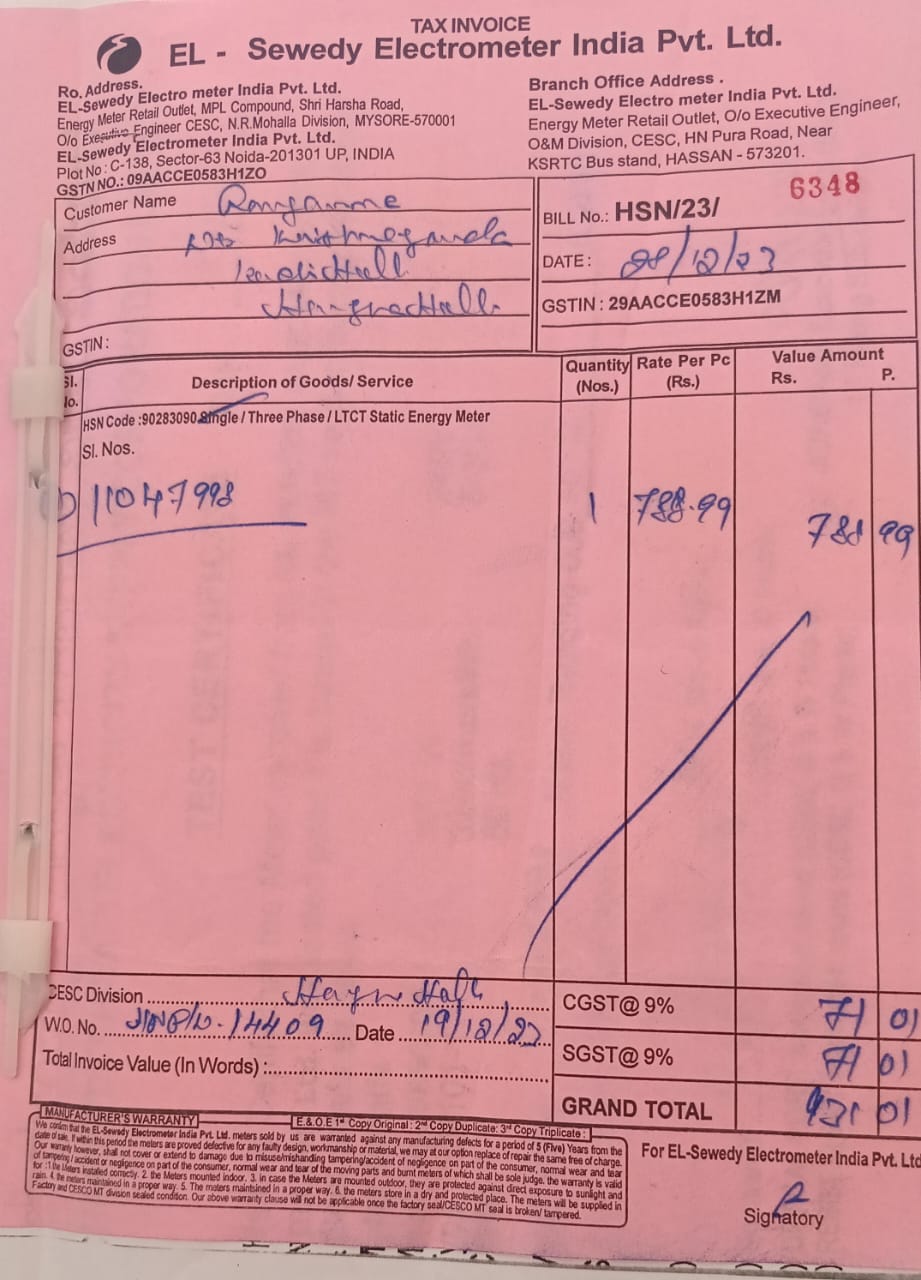 TAX INVOICE
EL - Sewedy Electrometer India Pvt. Ltd.
Ro. Address.
EL-Sewedy Electro meter India Pvt. Ltd.
Energy Meter Retail Outlet, MPL Compound, Shri Harsha Road,
O/o Executive Engineer CESC, N.R.Mohalla Division, MYSORE-570001
EL-Sewedy Electrometer India Pvt. Ltd.
Plot No : C-138, Sector-63 Noida-201301 UP, INDIA
GSTN NO.: 09AACCE0583H1ZO
Branch Office Address .
EL-Sewedy Electro meter India Pvt. Ltd.
Energy Meter Retail Outlet, O/o Executive Engineer,
O&M Division, CESC, HN Pura Road, Near
KSRTC Bus stand, HASSAN - 573201.
Customer Name
Address
GSTIN :
BILL No.: HSN/23/ 6348
DATE : 28/12/23
GSTIN : 29AACCE0583H1ZM
Sl. No. Description of Goods/ Service Quantity (Nos.) Rate Per Pc (Rs.) Value Amount Rs. P.
HSN Code :90283090 Single / Three Phase / LTCT Static Energy Meter
Sl. Nos.
11047998 1 788.99 788 99
CESC Division
W.O. No. 14409 Date 19/12/23
Total Invoice Value (In Words) :
CGST@ 9% 71 01
SGST@ 9% 71 01
GRAND TOTAL 931 01
MANUFACTURER'S WARRANTY E.& O.E 1st Copy Original : 2nd Copy Duplicate: 3rd Copy Triplicate :
We confirm that the EL-Sewedy Electrometer India Pvt. Ltd. meters sold by us are warranted against any manufacturing defects for a period of 5 (Five) Years from the
date of sale. If within this period the meters are proved defective for any faulty design, workmanship or material, we may at our option replace of repair the same free of charge.
Our warranty however, shall not cover or extend to damage due to misuse/mishandling tampering/accident of negligence on part of the consumer, normal wear and tear
of tampering / accident or negligence on part of the consumer, normal wear and tear of the moving parts and burnt meters of which shall be sole judge. the warranty is valid
for :1 the Meters installed correctly. 2. the Meters mounted indoor. 3. in case the Meters are mounted outdoor, they are protected against direct exposure to sunlight and
rain. 4. the meters maintained in a proper way. 5. The meters maintained in a proper way. 6. the meters store in a dry and protected place. The meters will be supplied in
Factory and CESCO MT division sealed condition. Our above warranty clause will not be applicable once the factory seal/CESCO MT seal is broken/ tampered.
For EL-Sewedy Electrometer India Pvt. Ltd
Signatory